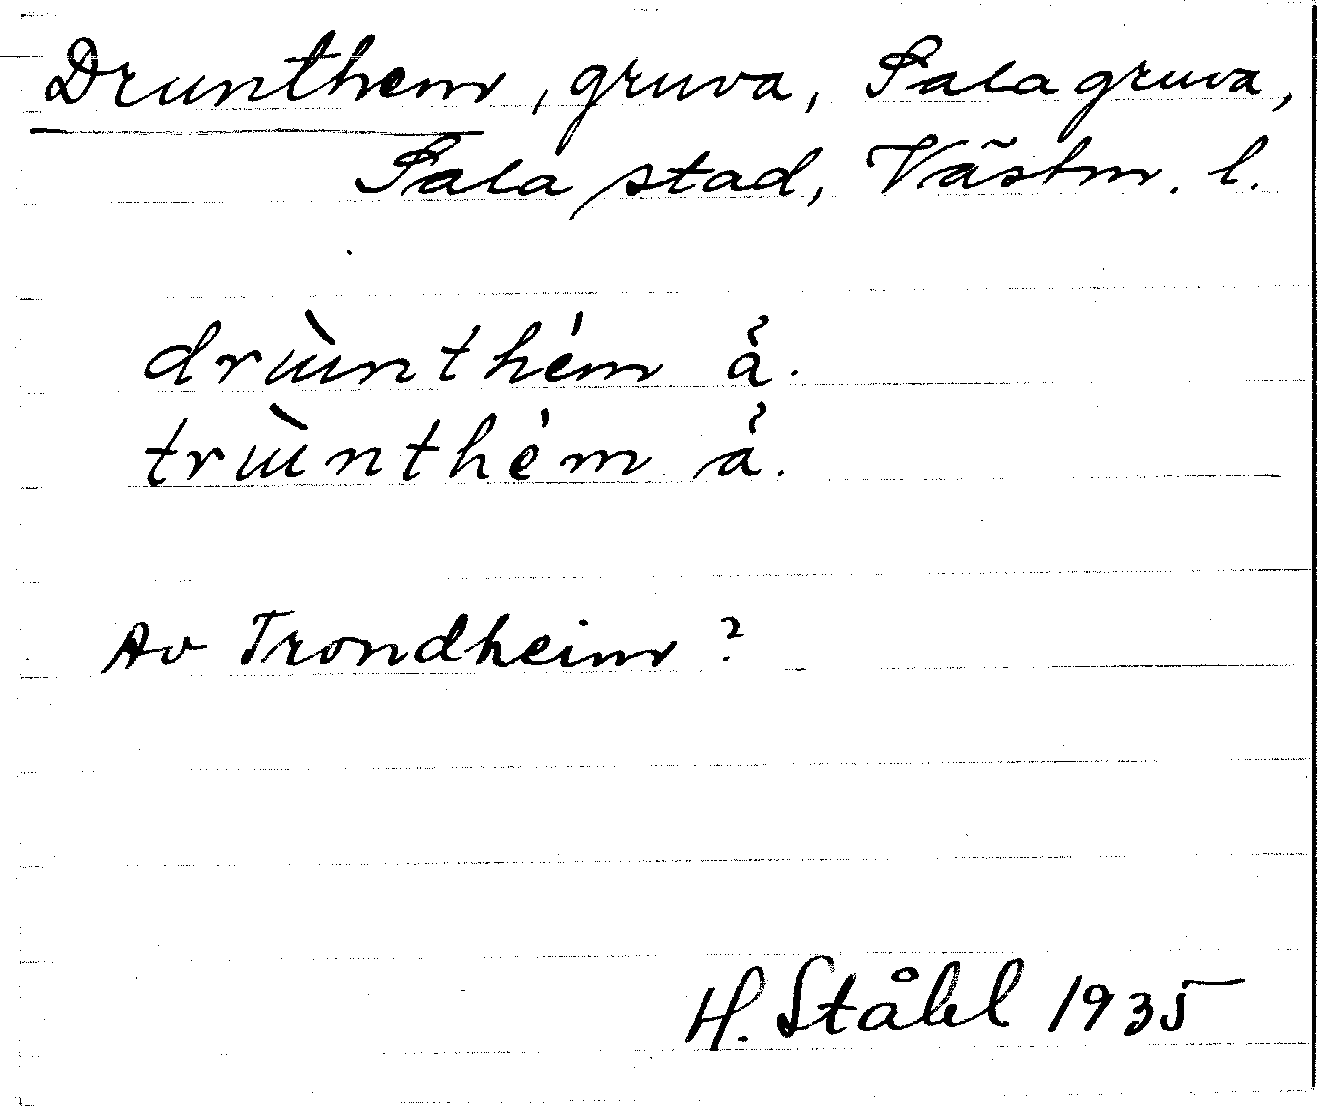 Drunthem, gruva, Sala gruva,
Sala stad, Västm. l.
drɯ̀nthém å̉.
trɯ̀nthém å̉.
Av Trondheim?
H. Ståhl 1935